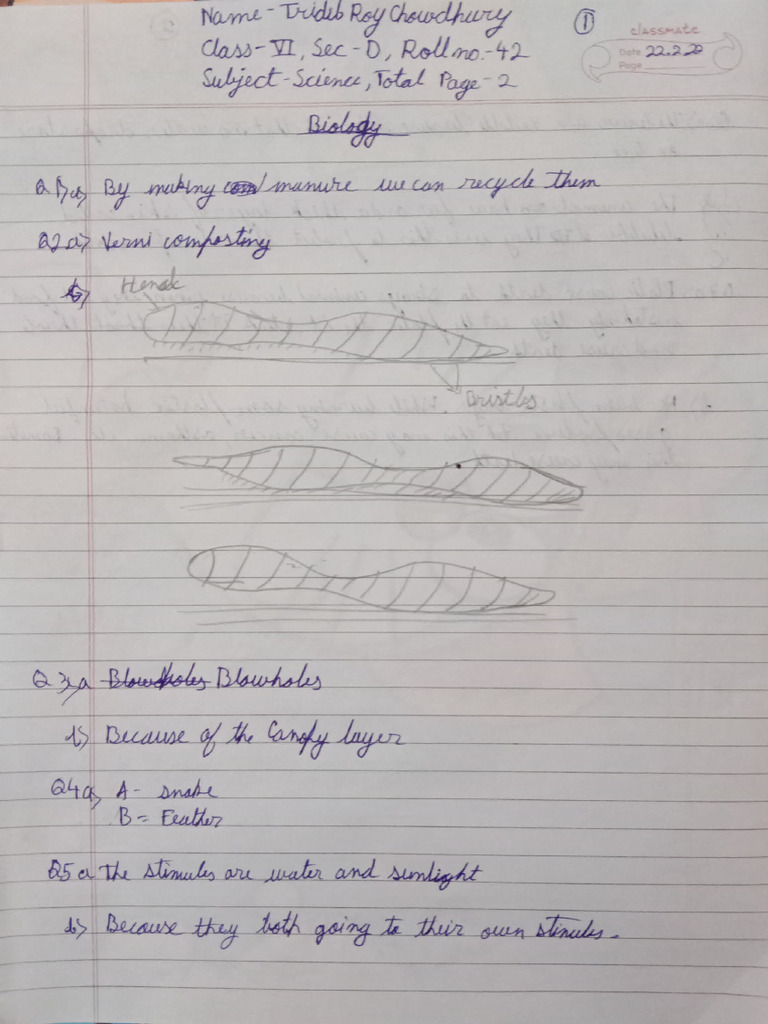 Name - Trideb Roy Chowdhury
①
classmate
Class - VI, Sec - D, Roll no. - 42
Date 22.2.20
Page
Subject - Science, Total Page - 2
Biology
Q1) a) By making manure we can recycle them
Q2 a) Vermi composting
b) Head
Bristles
Q3) a Blowholes Blowholes
b) Because of the Canopy layer
Q4 a) A - snake
B = Feather
Q5 a The stimules are water and sunlight
b) Because they both going to their own stimules.